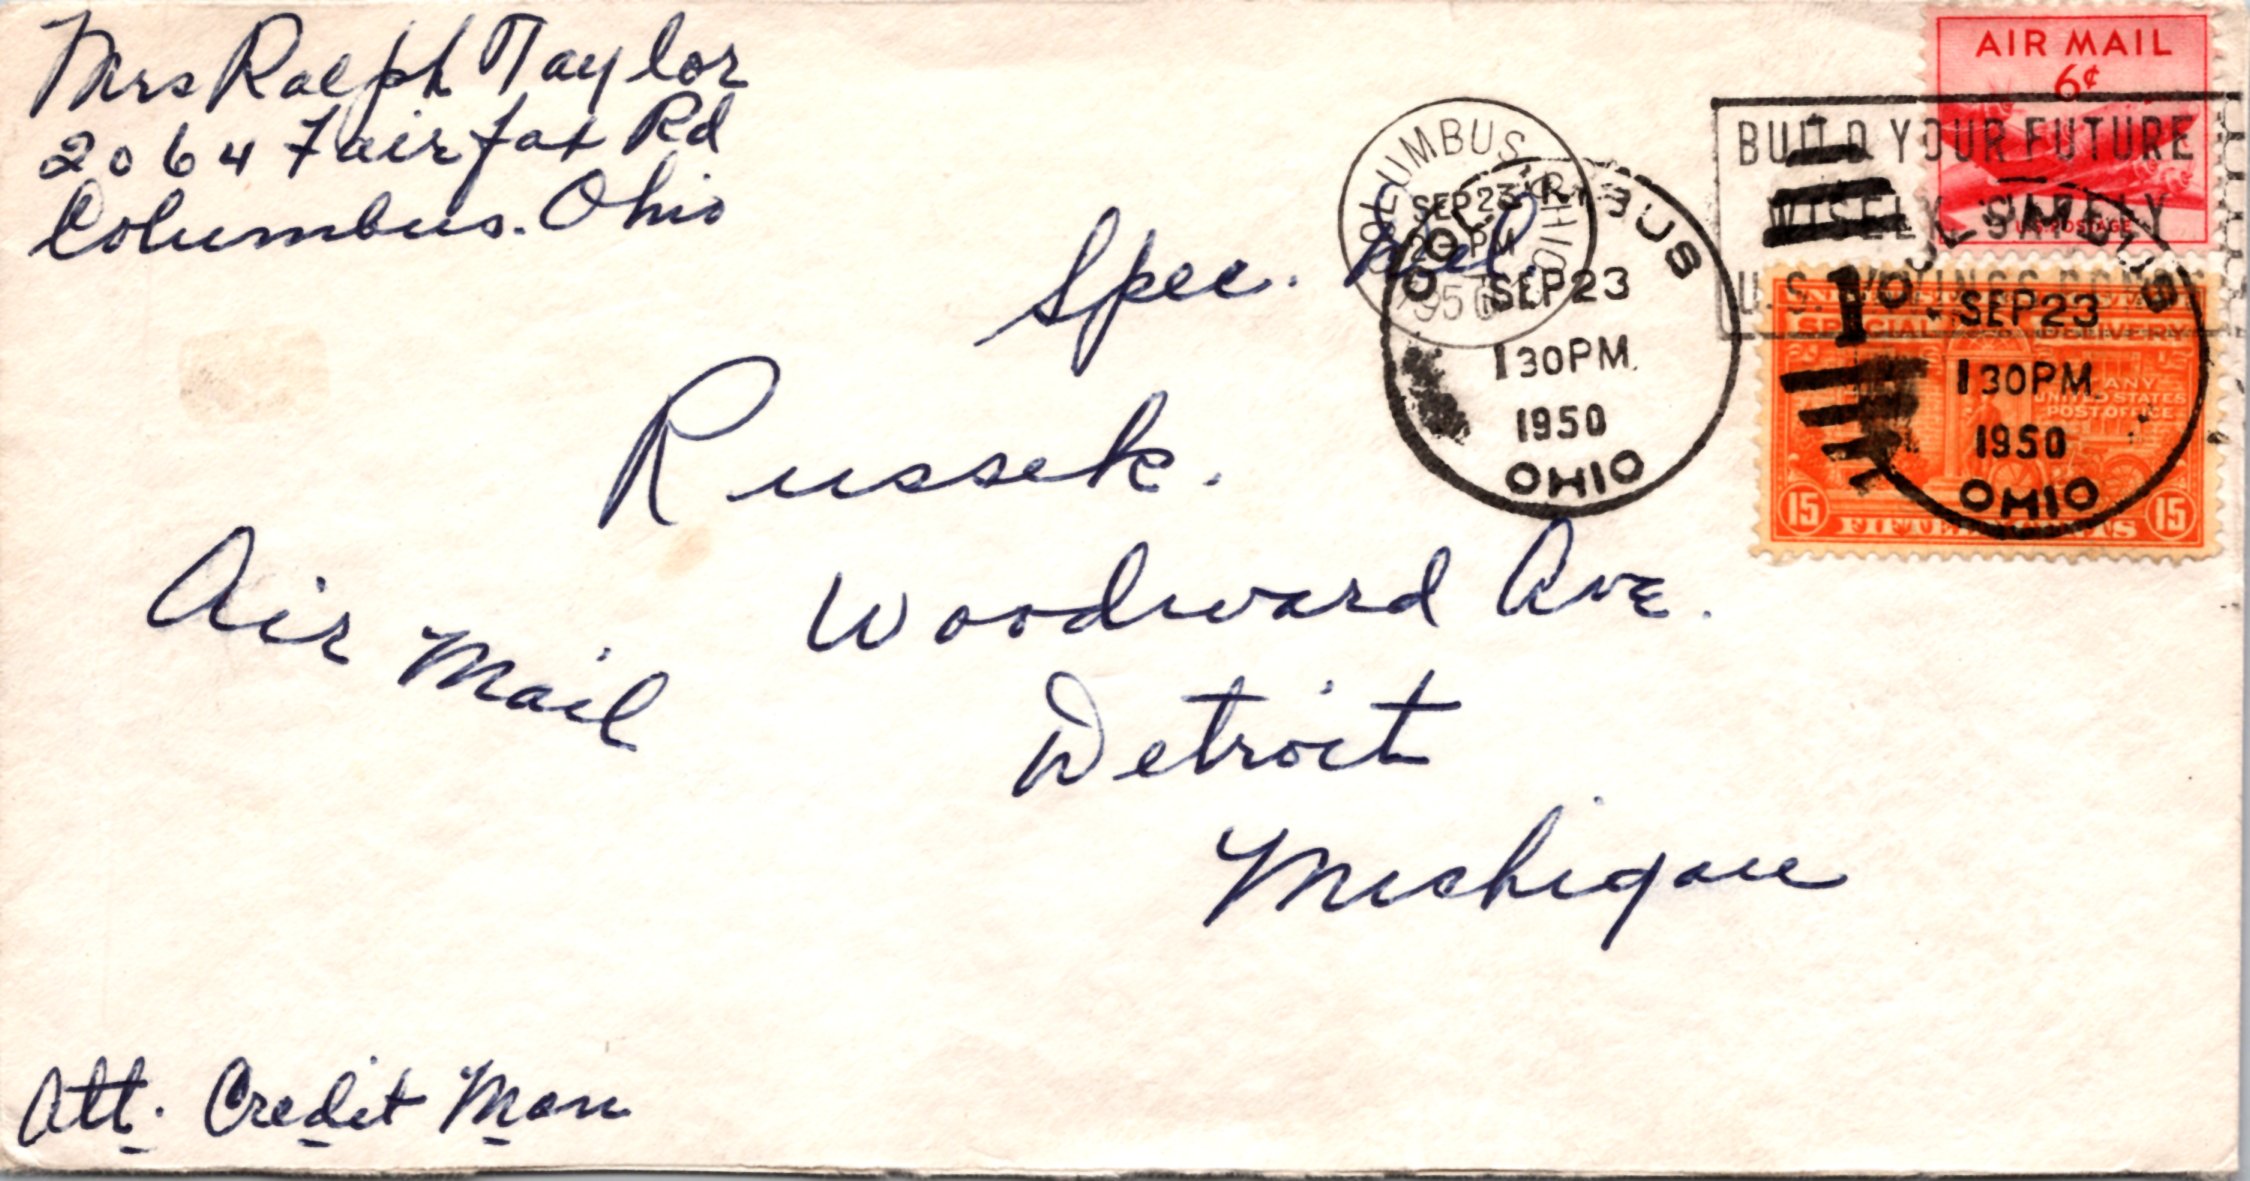 Mrs Ralph Taylor
2064 Fairfax Rd
Columbus. Ohio
AIR MAIL
6¢
U.S. POSTAGE
BUILD YOUR FUTURE
WISELY SAFELY
U.S. SAVINGS BONDS
COLUMBUS OHIO
SEP 23
PM
1950
COLUMBUS
SEP 23
1 30 PM
1950
OHIO
COLUMBUS
SEP 23
1 30 PM
1950
OHIO
1
SPECIAL DELIVERY
ANY
UNITED STATES
POST OFFICE
15 FIFTEEN CENTS 15
Spec. Del.
Russek.
Air Mail
Woodward Ave.
Detroit
Michigan
Att. Credit Man